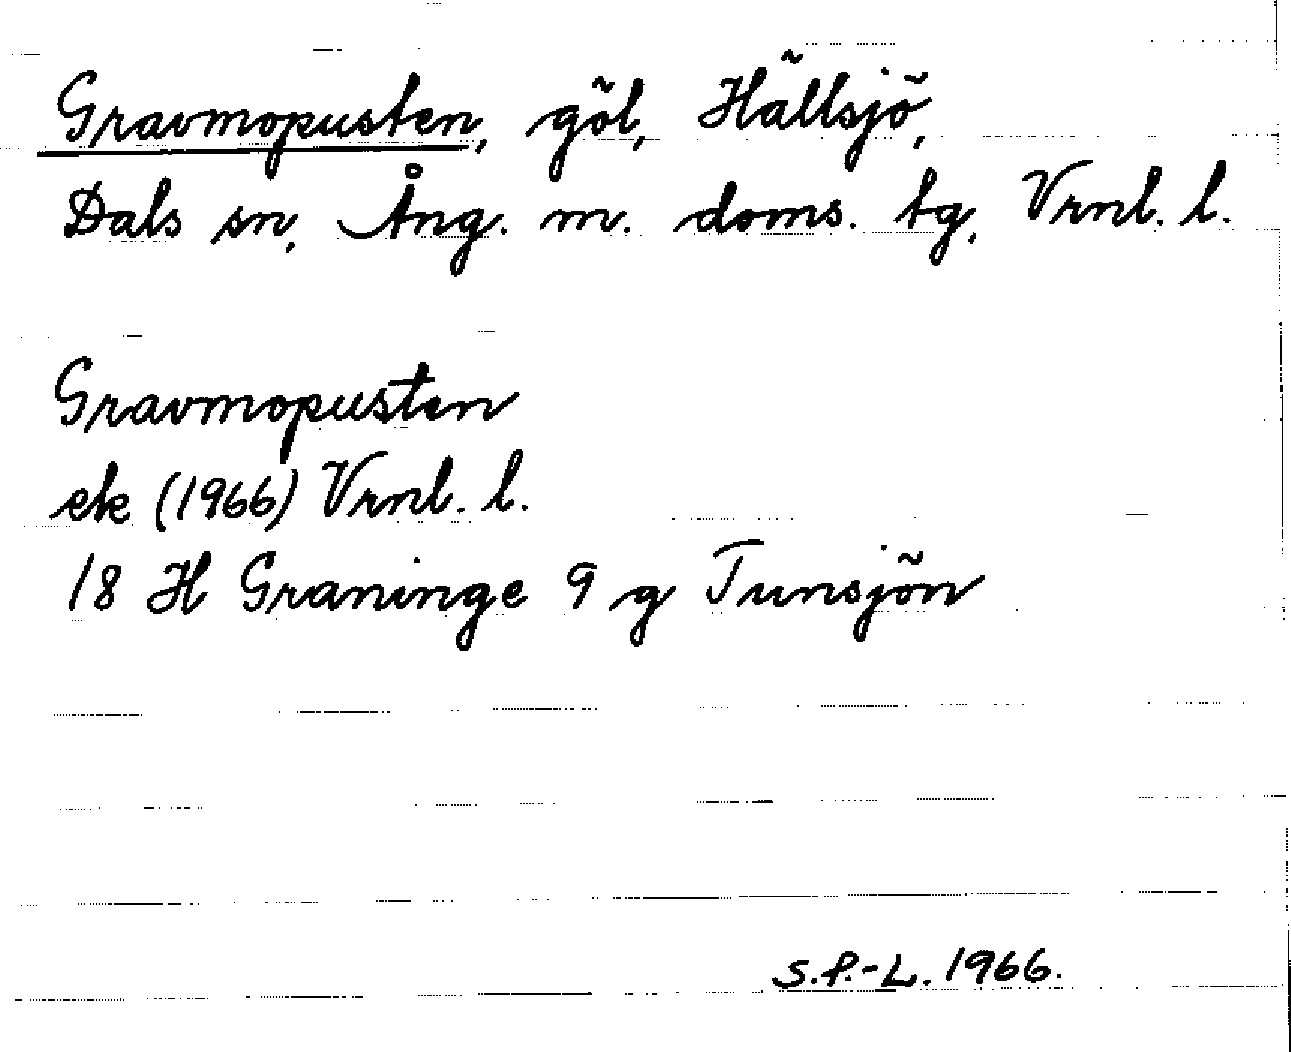 Gravmopusten, göl, Hällsjö,
Dals sn, Ång. m. doms. tg, Vrnl. l.
Gravmopusten
ek (1966) Vrnl. l.
18 H Graninge 9 g Tunsjön
S.P.-L. 1966.